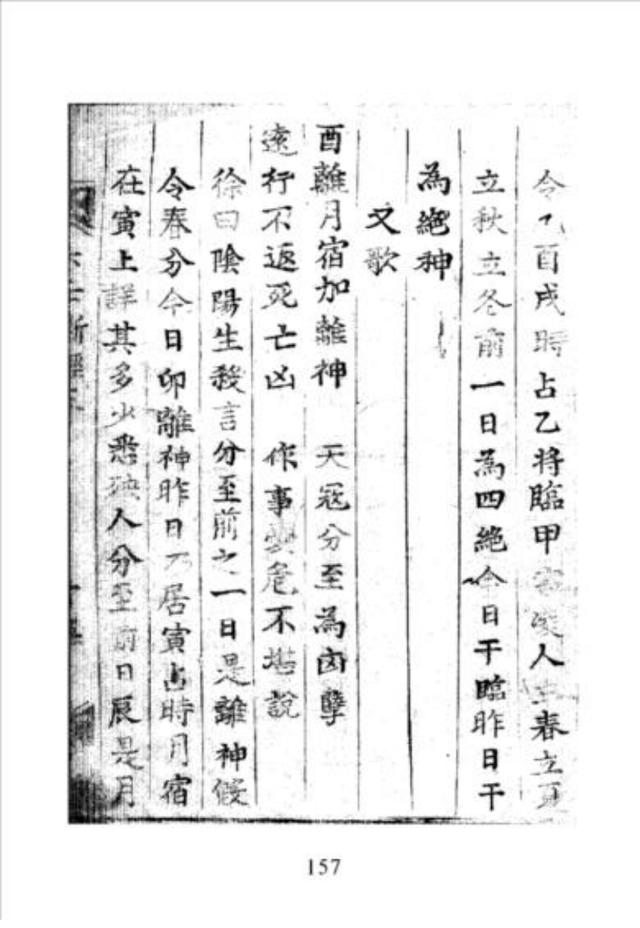 令乙酉戌時占乙將臨甲人春立夏
立秋立冬前一日為四絕今日干臨昨日干
為絕神
又歌
酉離月宿加離神　天冦分至為凶孽
遠行不返死亡凶　作事危不堪說
徐曰陰陽生殺言分至前之一日是離神假
令春分今日卯離神昨日乙居寅占時月宿
在寅上詳其多少悉殃人分至前日辰是月
157